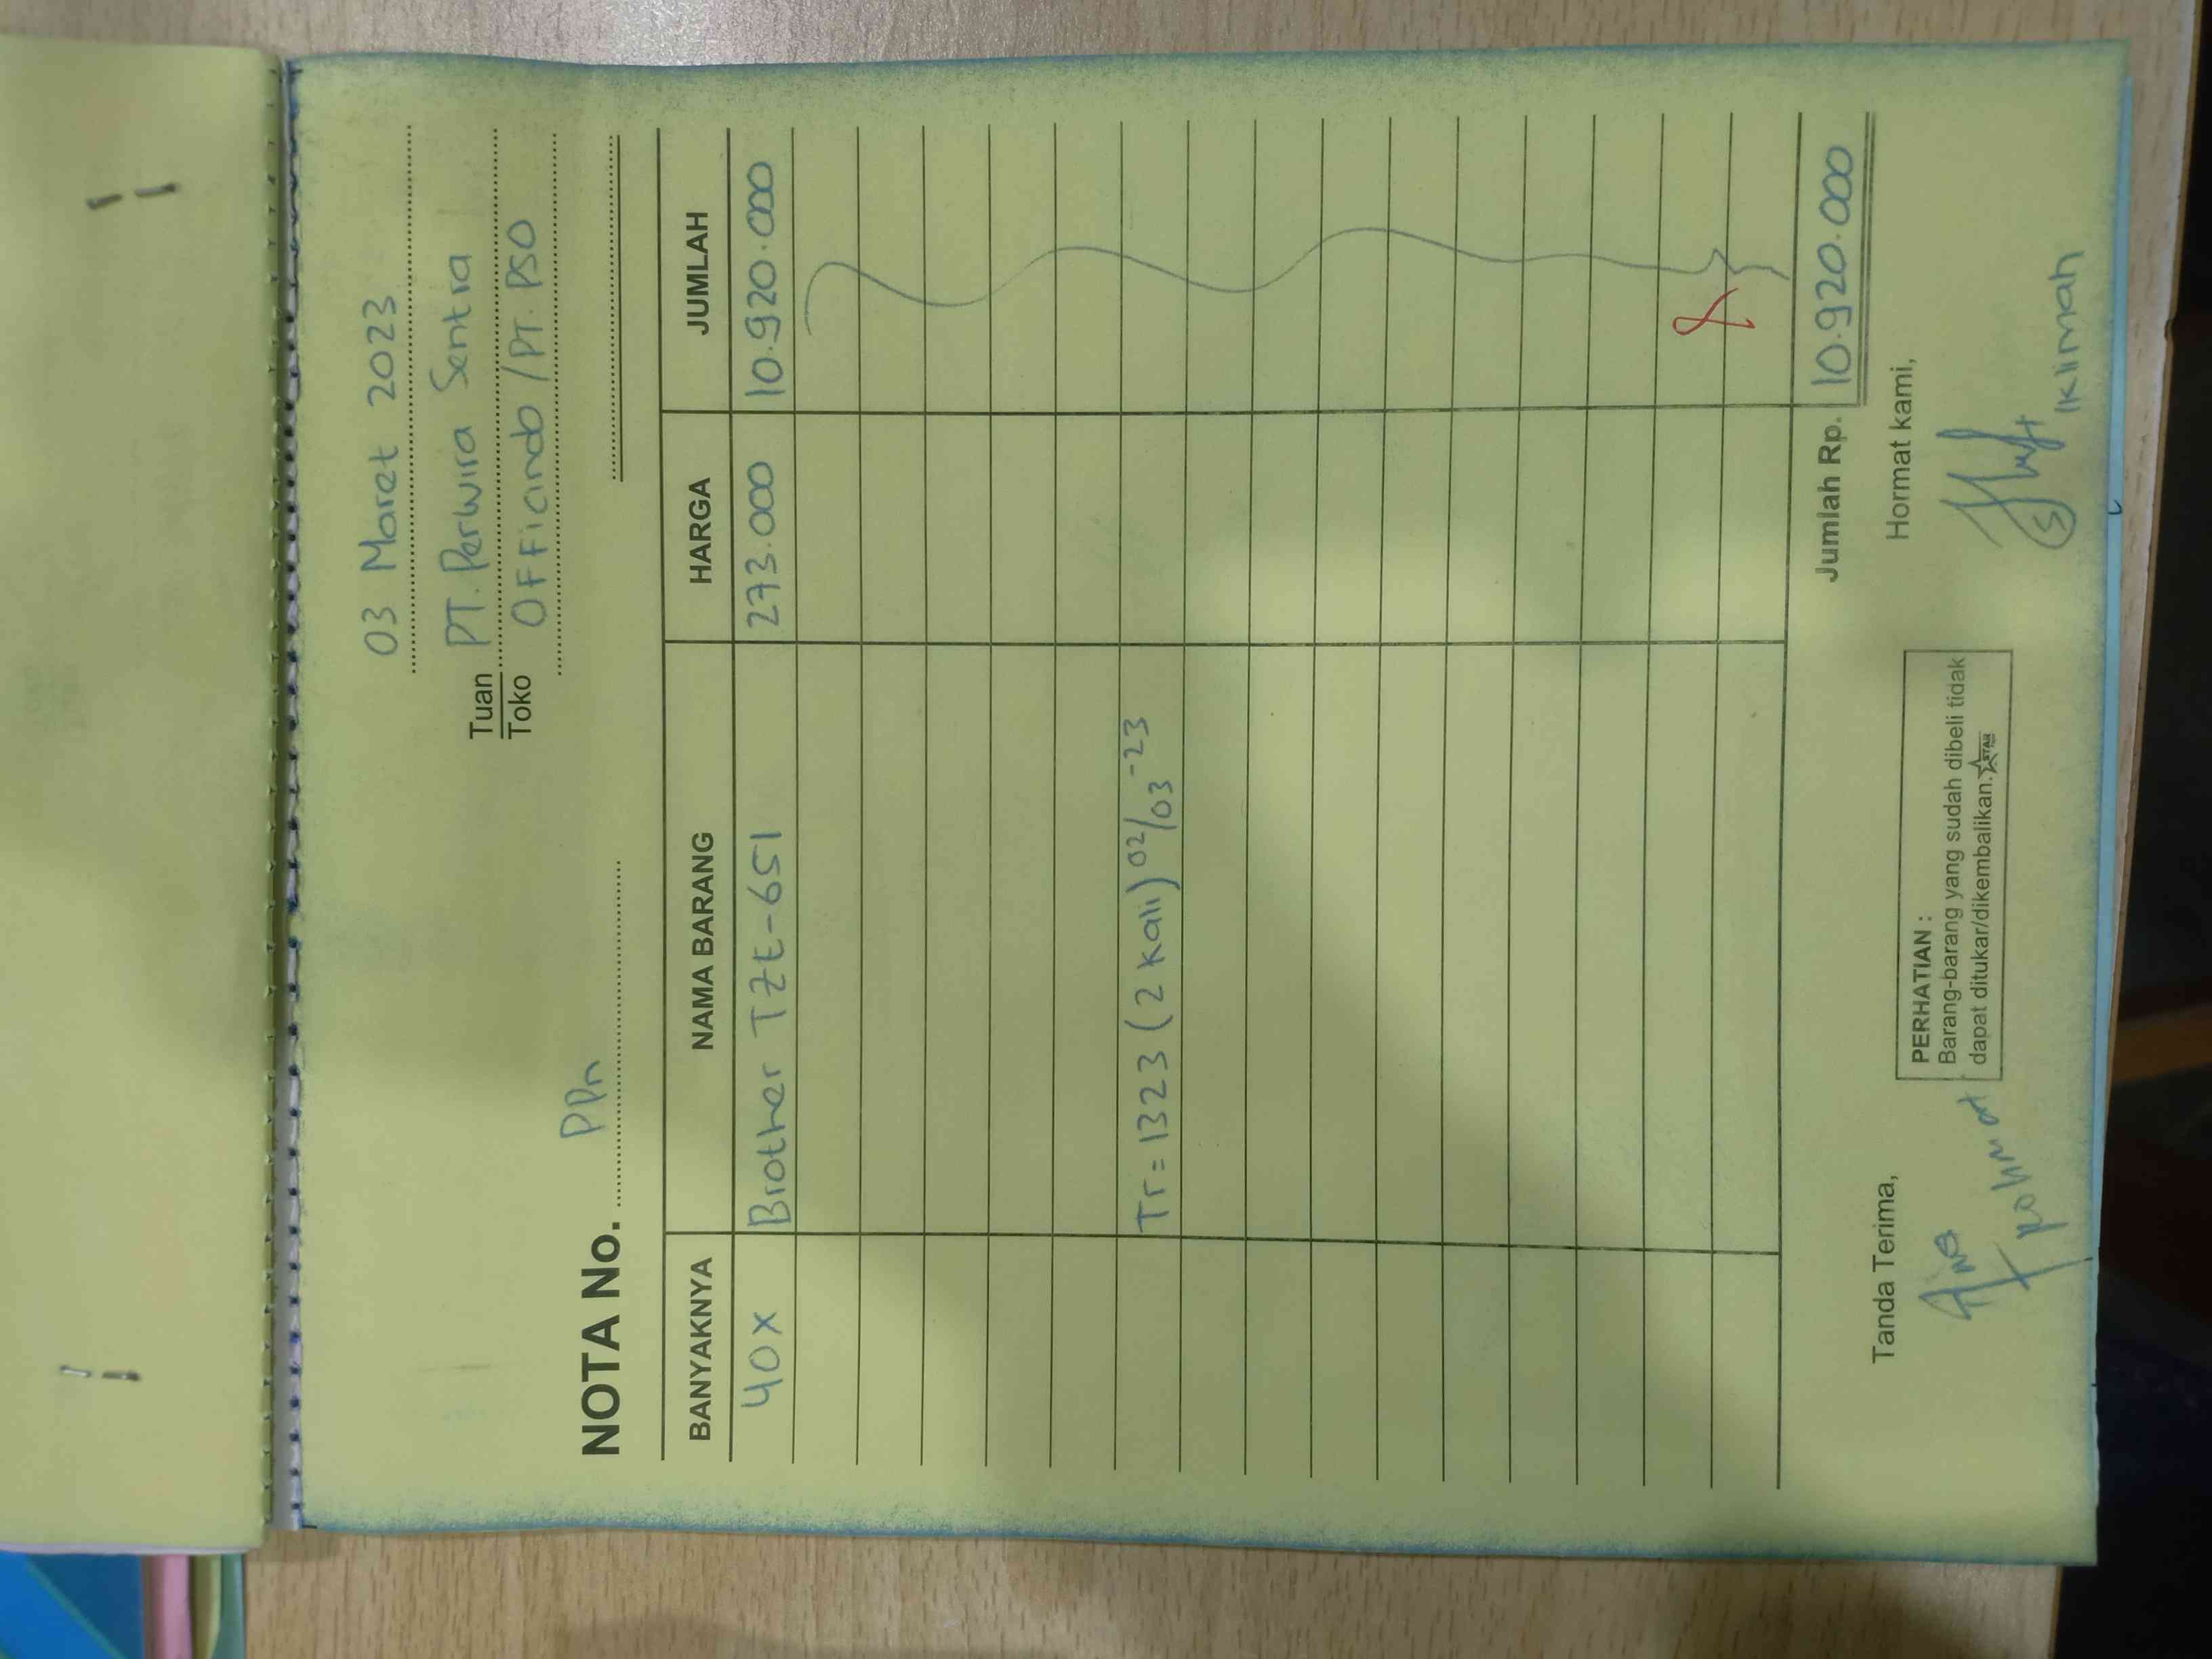 03 Maret 2023
Tuan PT. Perwira Sentra
Toko OFFicindo / PT. PSO
NOTA No. PPn
BANYAKNYA NAMA BARANG HARGA JUMLAH
40x Brother TZE-651 273.000 10.920.000
Tr = 1323 (2 kali) 02/03-23
Jumlah Rp. 10.920.000
Tanda Terima,
PERHATIAN :
Barang-barang yang sudah dibeli tidak
dapat ditukar/dikembalikan.
Hormat kami,
Iklimah